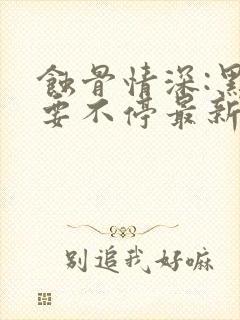 蝕骨情深:黑
要不停最新
别追我好嘛